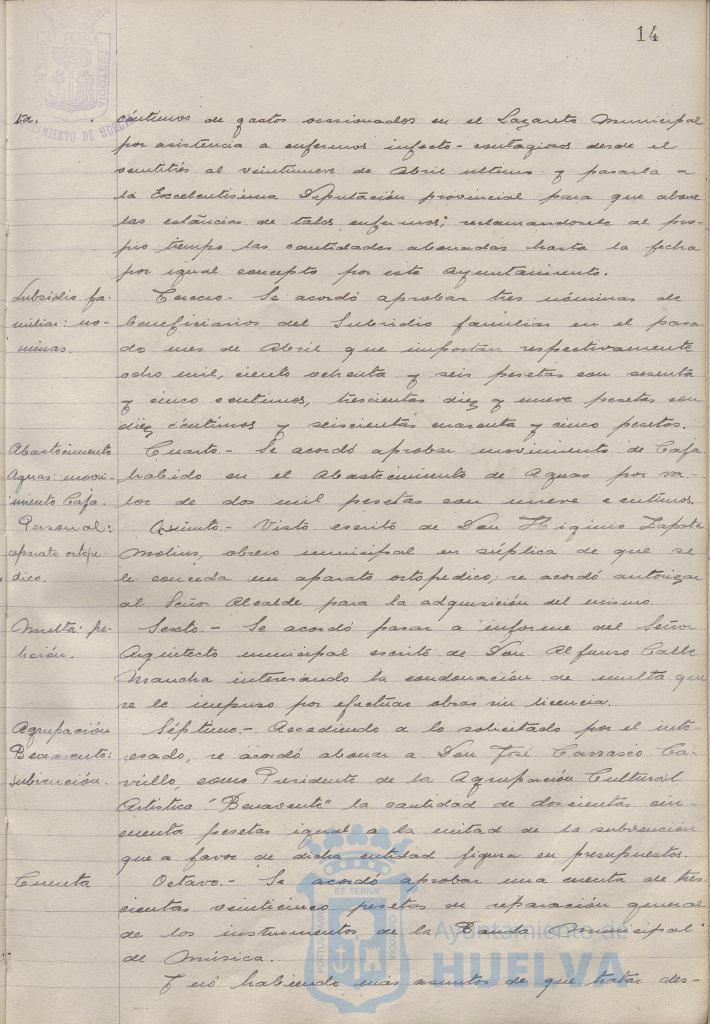 14
ta.
céntimos de gastos ocasionados en el Lazareto Municipal
por asistencia a enfermos infecto-contagiosos desde el
veintitrés al veintinueve de Abril ultimo y pasarla a
la Excelentísima Diputación provincial para que abone
las estáncias de tales enfermos; reclamandosele al pro-
pio tiempo las cantidades abonadas hasta la fecha
por igual concepto por este Ayuntamiento.
Subsidio fa-
miliar: nó-
minas.
Tercero.- Se acordó aprobar tres nóminas de
beneficiarios del Subsidio familiar en el pasa-
do mes de Abril que importan respectivamente
ocho mil, ciento ochenta y seis pesetas con sesenta
y cinco centimos, trescientas diez y nueve pesetas con
diez céntimos y seiscientas cuarenta y cinco pesetas.
Abastecimiento
Aguas: movi-
miento Caja.
Cuarto.- Se acordó aprobar movimiento de Caja
habido en el Abastecimiento de Aguas por va-
lor de dos mil pesetas con nueve centimos.
Personal:
aparato ortope-
dico.
Quinto.- Visto escrito de Don Higinio Zapata
Molins, obrero municipal en súplica de que se
le conceda un aparato ortopedico; se acordó autorizar
al Señor Alcalde para la adquisición del mismo
Multa: pe-
tición.
Sexto.- Se acordó pasar a informe del Señor
Arquitecto municipal escrito de Don Alfonso Calle
Mancha interesando la condonación de multa que
se le impuso por efectuar obras sin licencia.
Agrupación
Benavente:
subvención.
Séptimo.- Accediendo a lo solicitado por el inte-
resado, se acordó abonar a Don José Carrasco Ca-
rrillo, como Presidente de la Agrupación Cultural
Artistica "Benavente" la cantidad de doscientas cin-
cuenta pesetas igual a la mitad de la subvención
que a favor de dicha entidad figura en presupuestos.
Cuenta
Octavo.- Se acordó aprobar una cuenta de tres-
cientas veinticinco pesetas de reparación general
de los instrumentos de la Banda Municipal
de Música.
Y nó habiendo más asuntos de que tratar des-
Ayuntamiento de
HUELVA